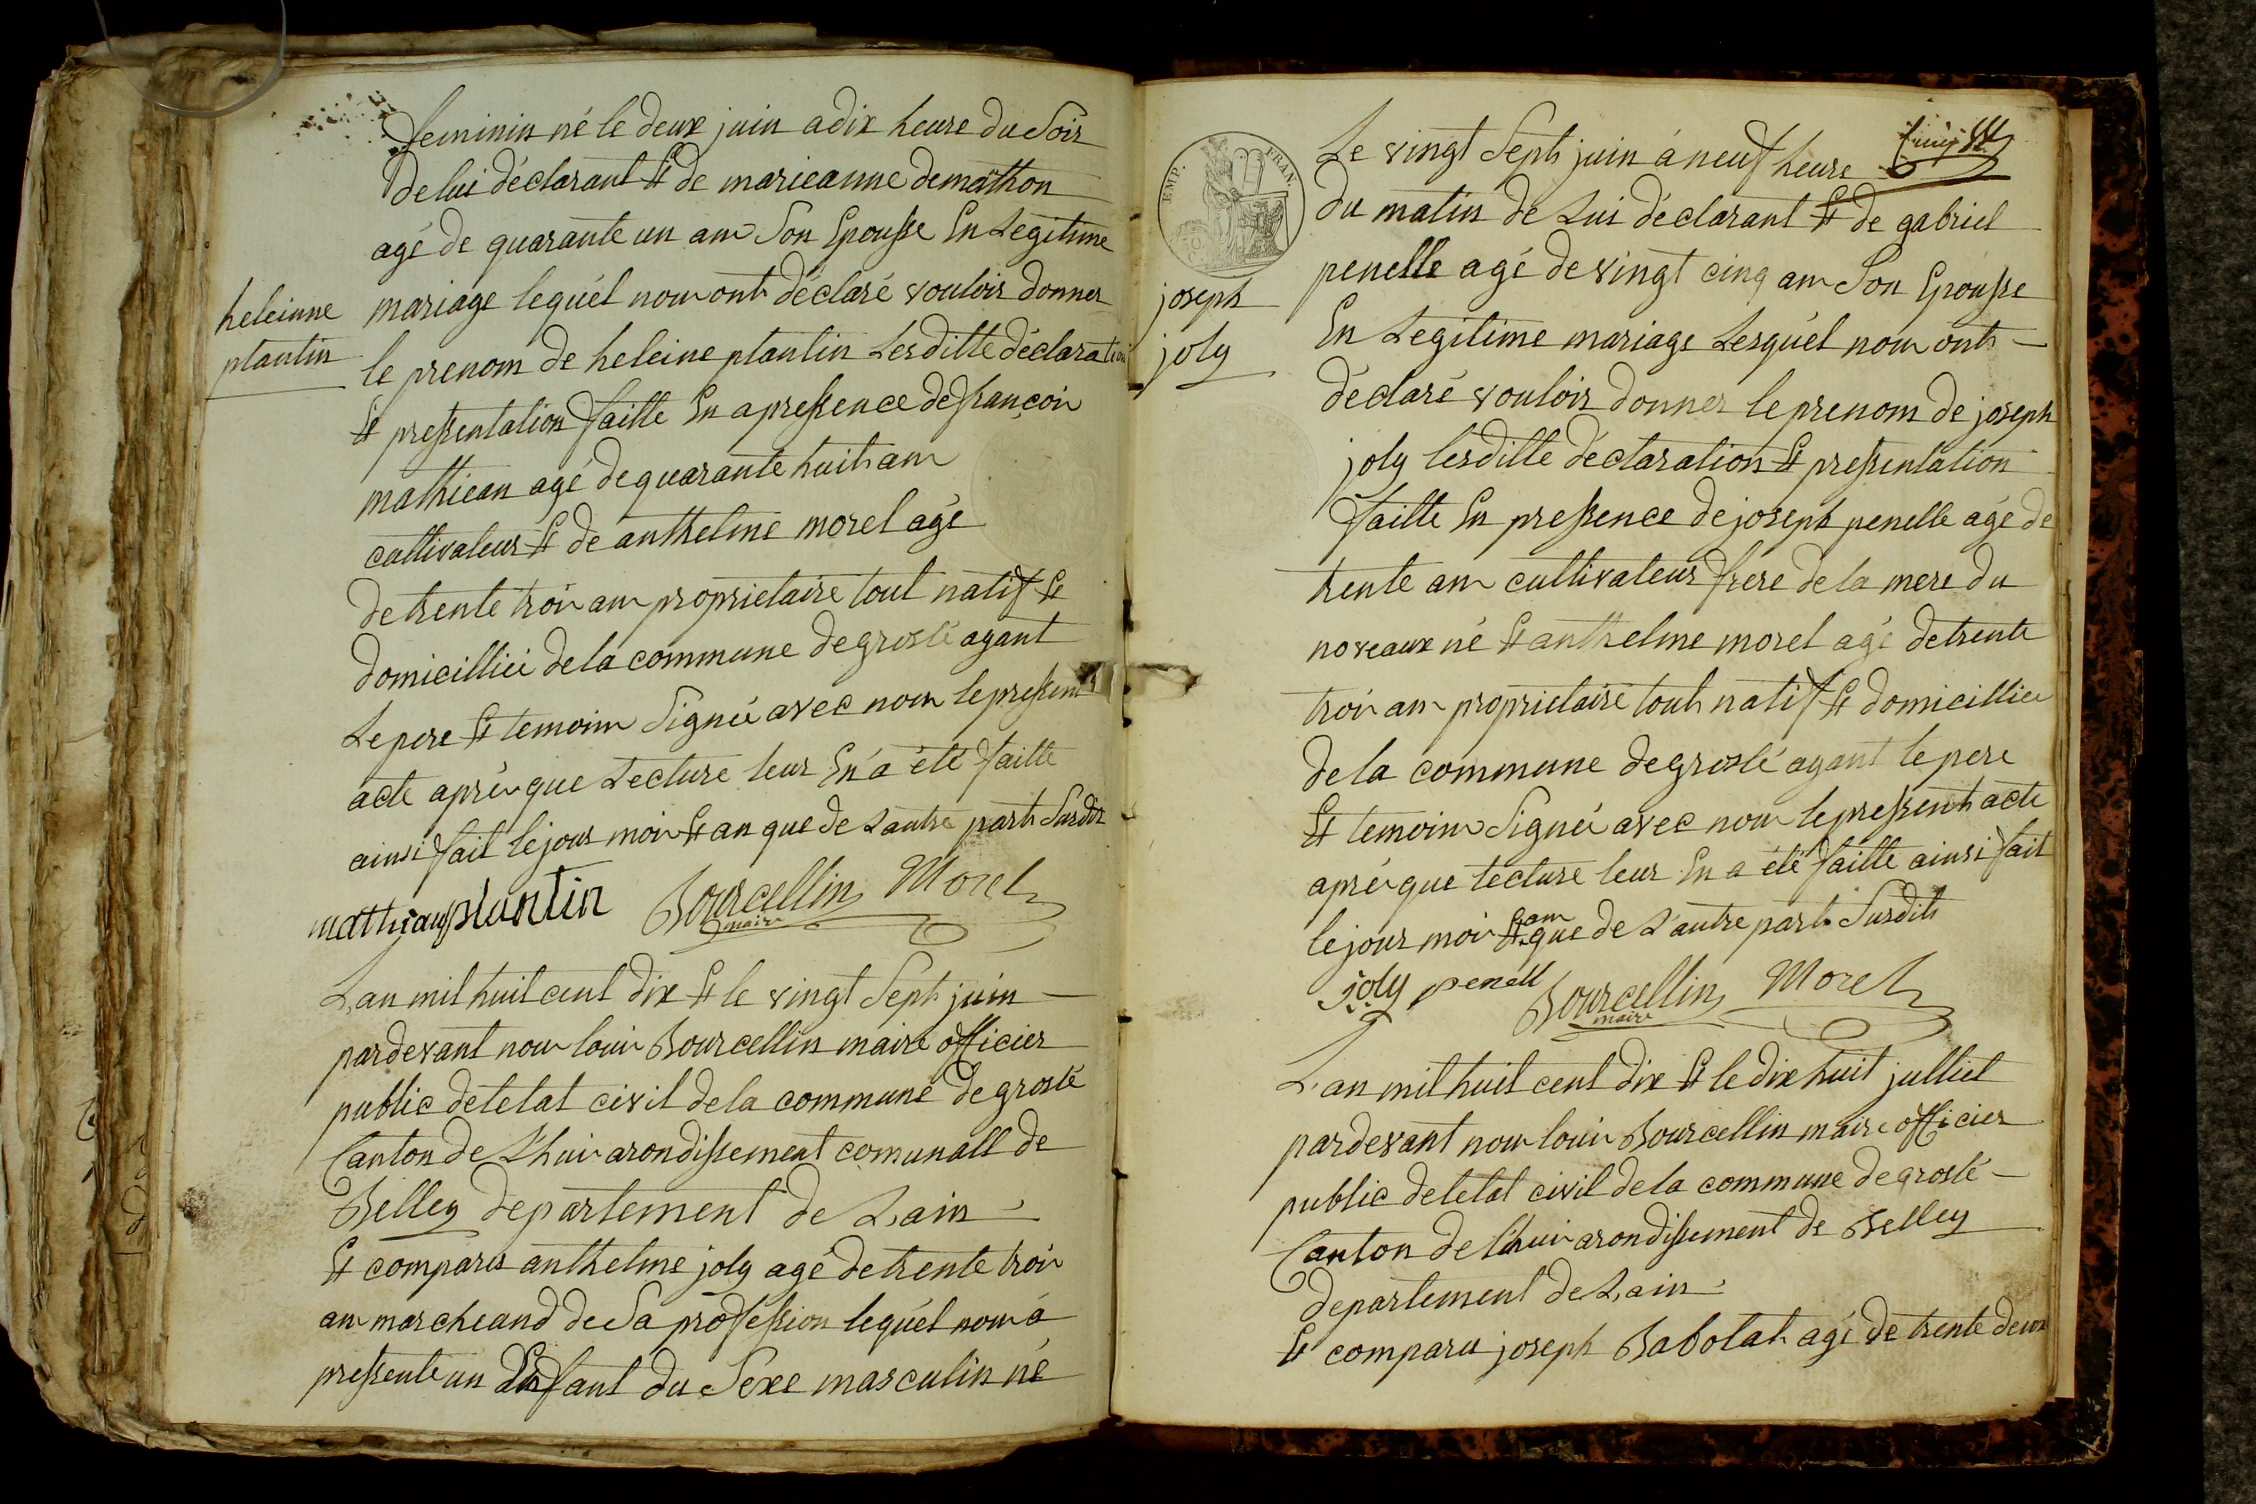 feminin né le deux juin a dix heure du Soir
de lui déclarant Et de marieanne demathon
agé de quarante un ans Son Epousse En Legitime
mariage lequél nous onts déclaré vouloir donner
heleinne
plantin
le prenom de heleine plantin Les ditte déclaration
Et pressentation faitte En a pressence de françois
mathieau agé de quarante huits ans
cultivateur Et de anthelme morel agé
de trente trois ans proprietaire tout natif Et
domicilliéé de la commune de groslé ayant
Le pere Et temoins Signéé avec nous le pressents
acte aprés que Lecture leur En a été faitte
ainsi fait le jour mois Et an que de Lautre parts Surdits
mathiau plantin Bourcellin Morel
maire
Lan mil huit cent dix Et le vingt Septs juin
pardevant nous louis Bourcellin maire officier
public de letat civil de la commune de groslé
Canton de Lhuis arondissement comunall de
Belley departement de Lain
Et comparu anthelme joly agé de trente trois
ans marcheand de Sa profession lequél nous á
pressenté un Enfant du Sexe masculin né
EMP. FRAN.
Le vingt Septs juin á neuf heure
du matin de Lui déclarant Et de gabriel
penelle agé de vingt cinq ans Son Epousse
joseph
joly
En Legitime mariage Lesquél nous onts
déclaré vouloir donner le prenom de joseph
joly lesditte déclaration Et pressentation
faitte En pressence de joseph penelle agé de
trente ans cultivateur frere de la mere du
noveaux né Et anthelme morel agé de trente
trois ans proprietaire touts natif Et domicilliée
de la commune de groslé ayant le pere
Et temoins Signéé avec nous le pressents acte
aprés que lecture leur En a été faitte ainsi fait
le jour mois Et ans que de L'autre parts Surdits
joly penell Bourcellin Morel
maire
L'an mil huit cent dix Et le dix huit julliet
pardevant nous louis Bourcellin maire officier
public de letat civil de la commune de groslé
Canton de lhuis arondissement de Belley
departement de Lain
Et comparu joseph Babolats agé de trente deux